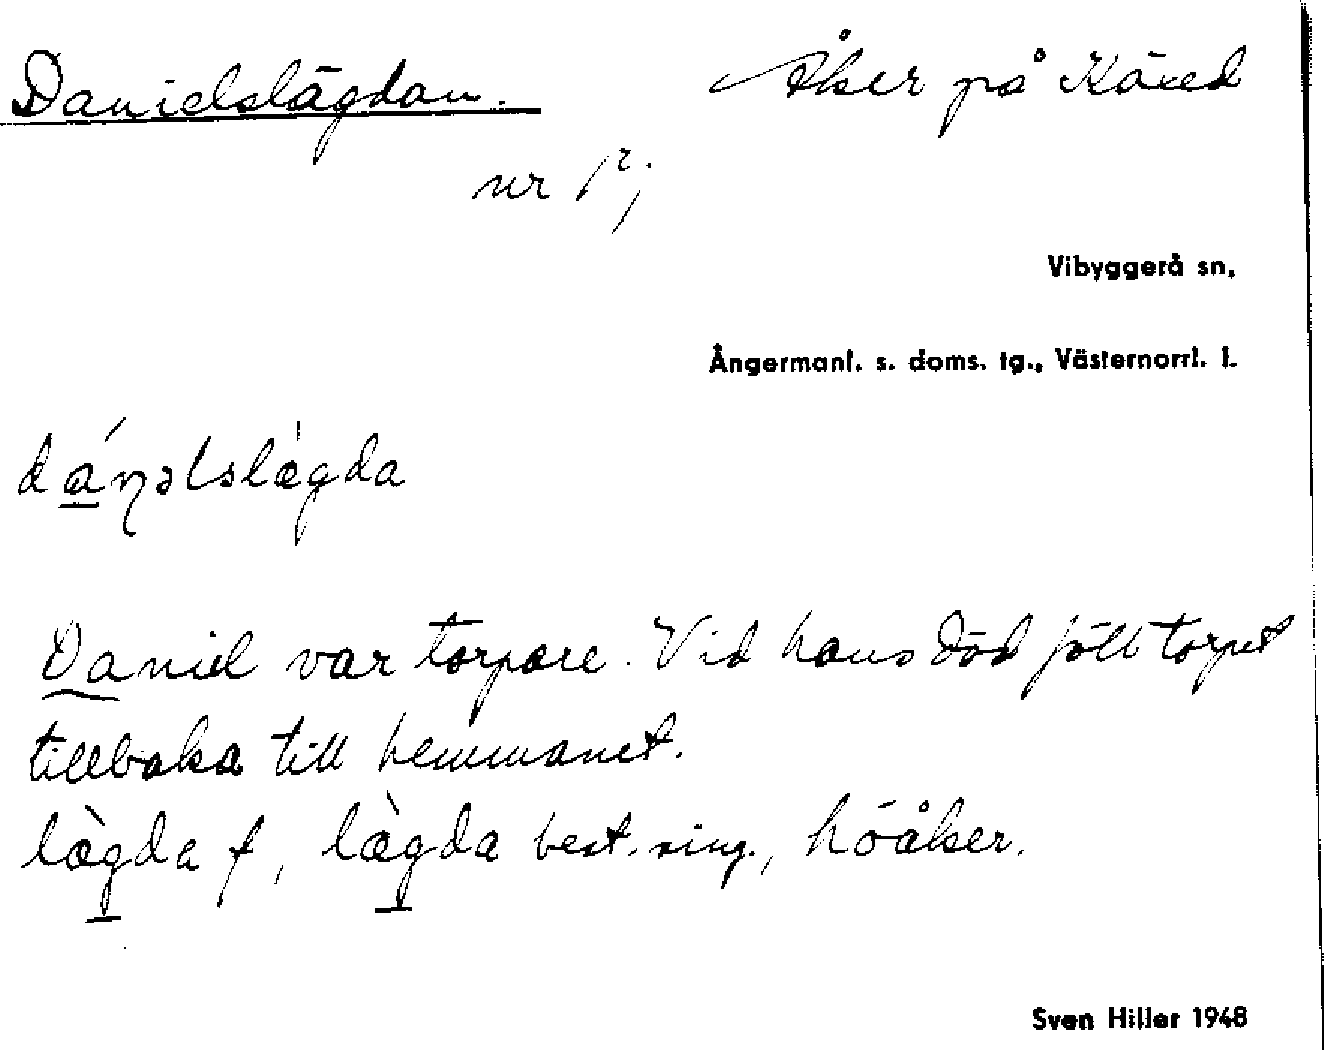 Danielslägdan. Åker på Käxed
nr 1²;
Vibyggerå sn,
Ångermanl. s. doms. tg., Västernorrl. l.
dáņəlslæ̀gda
Daniel var torpare. Vid hans död föll torpet
tillbaka till hemmanet.
lægde f, lægda best. sing., höåker.
Sven Hiller 1948